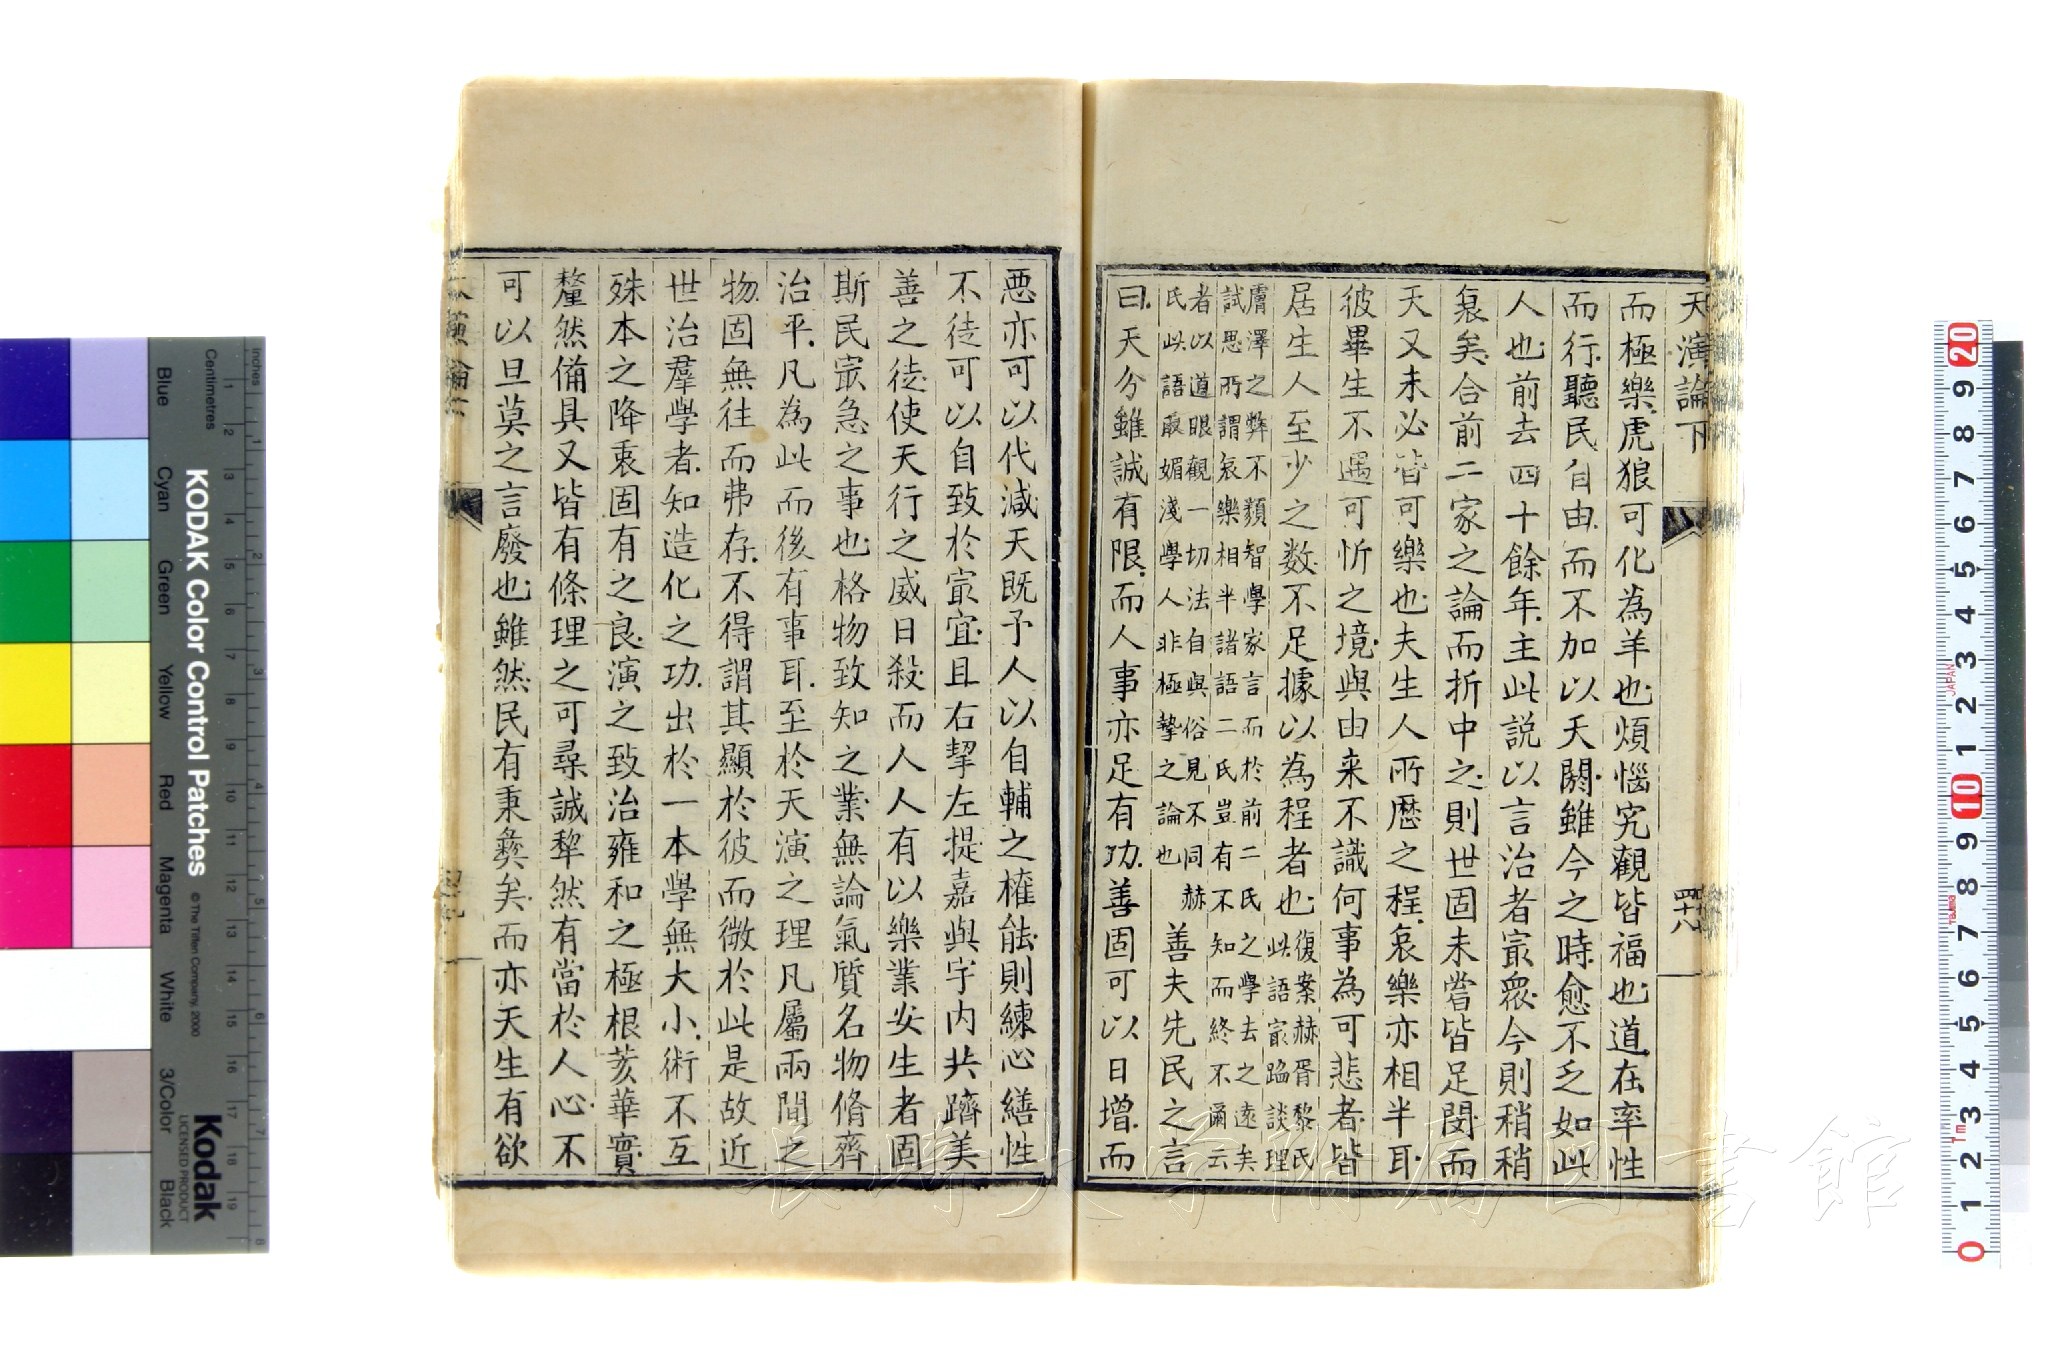 天演論下
四十八
而極樂。虎狼可化為羊也。煩惱究觀皆福也。道在率性
而行。聽民自由。而不加以天閼。雖今之時愈不乏如此
人也。前去四十餘年。主此説以言治者㝡眾。今則稍稍
衰矣。合前二家之論而折中之。則世固未嘗皆足閔。而
天又未必皆可樂也。夫生人所歷之程。哀樂亦相半耳。
彼畢生不遇可忻之境。與由来不識何事為可悲者。皆
居生人至少之数。不足據以為程者也。
復案赫胥黎氏
此語㝡蹈談理
膚澤之弊不類智學家言而於前二氏之學去之遠矣
試思所謂哀樂相半諸語二氏豈有不知而終不爾云
者以道眼觀一切法自與俗見不同赫
氏此語㝡媚淺學人非極摯之論也
善夫先民之言
曰。天分雖誠有限。而人事亦足有功。善固可以日增。而
惡亦可以代減。天既予人以自輔之權能。則練心繕性
不徒可以自致於㝡宜。且右挈左提。嘉與宇内共躋美
善之徒。使天行之威日殺。而人人有以樂業安生者。固
斯民㝡急之事也。格物致知之業。無論氣質名物脩齊
治平。凡為此而後有事耳。至於天演之理。凡屬兩間之
物。固無往而弗存。不得謂其顯於彼而微於此。是故近
世治羣學者。知造化之功。出於一本。學無大小。術不互
殊。本之降衷固有之良。演之致治雍和之極。根荄華實。
釐然備具。又皆有條理之可尋。誠犂然有當於人心。不
可以旦莫之言廢也。雖然民有秉彝矣。而亦天生有欲
天演論下
長崎大学附属図書館
KODAK Color Control Patches
© The Tiffen Company, 2000
Kodak
LICENSED PRODUCT
Inches
Centimetres
Blue
Cyan
Green
Yellow
Red
Magenta
White
3/Color
Black
JAPAN